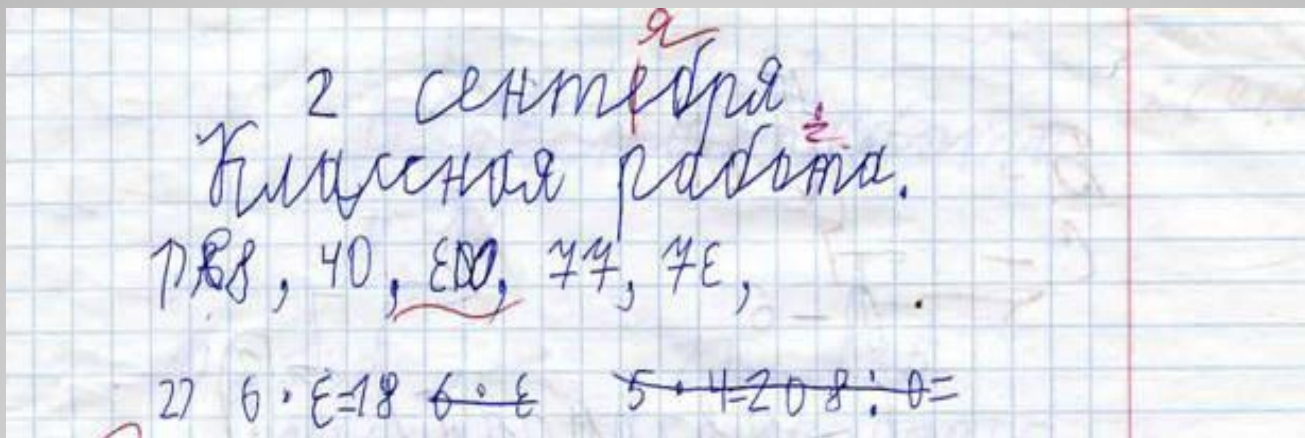 2 сентебря
Классная работа.
1) 88, 40, Ɛ00, 77, 7Ɛ,
2) 6 · Ɛ=18 6 · Ɛ 5 · 4=20 8 : 0=